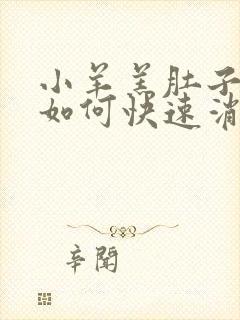 小羊羔肚子
如何快速消
辛闻